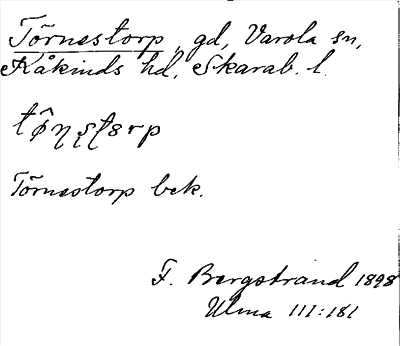 Törnestorp, gd, Varola sn,
Kåkinds hd, Skarab. l.
Törnestorp bek.
F. Bergstrand 1898
Ulma 111:181